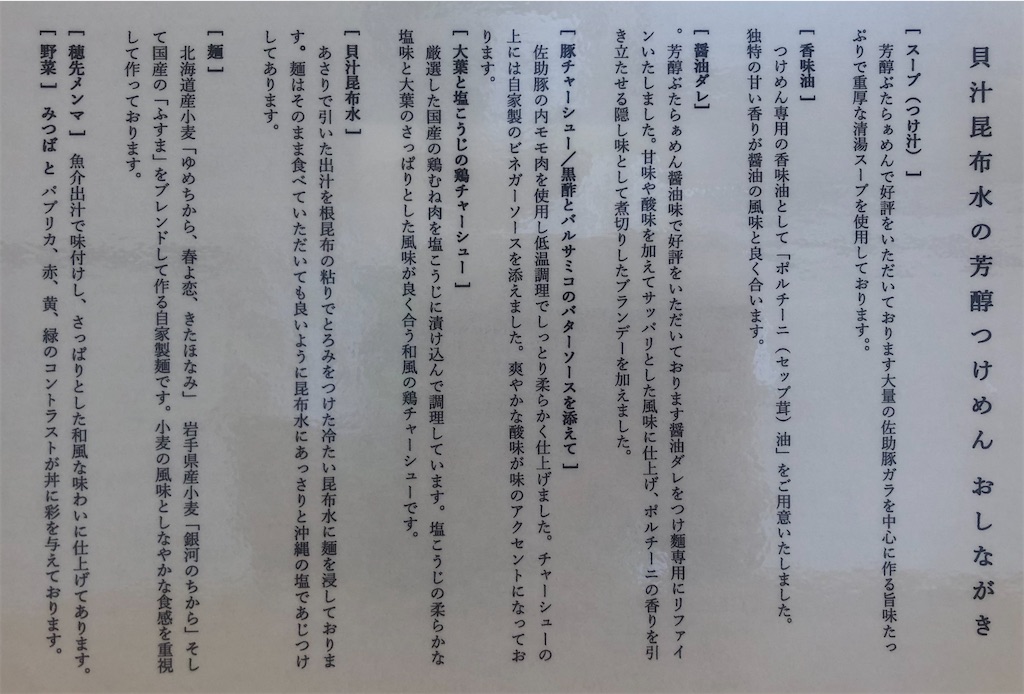 貝汁昆布水の芳醇つけめん おしながき
[ スープ（つけ汁） ]
芳醇ぶたらぁめんで好評をいただいております大量の佐助豚ガラを中心に作る旨味たっ
ぷりで重厚な清湯スープを使用しております。。
[ 香味油 ]
つけめん専用の香味油として「ポルチーニ（セップ茸）油」をご用意いたしました。
独特の甘い香りが醤油の風味と良く合います。
[ 醤油ダレ]
。芳醇ぶたらぁめん醤油味で好評をいただいております醤油ダレをつけ麵専用にリファイ
ンいたしました。甘味や酸味を加えてサッパリとした風味に仕上げ、ポルチーニの香りを引
き立たせる隠し味として煮切りしたブランデーを加えました。
[ 豚チャーシュー／黒酢とバルサミコのバターソースを添えて ]
佐助豚の内モモ肉を使用し低温調理でしっとり柔らかく仕上げました。チャーシューの
上には自家製のビネガーソースを添えました。爽やかな酸味が味のアクセントになってお
ります。
[ 大葉と塩こうじの鶏チャーシュー ]
厳選した国産の鶏むね肉を塩こうじに漬け込んで調理しています。塩こうじの柔らかな
塩味と大葉のさっぱりとした風味が良く合う和風の鶏チャーシューです。
[ 貝汁昆布水 ]
あさりで引いた出汁を根昆布の粘りでとろみをつけた冷たい昆布水に麺を浸しておりま
す。麺はそのまま食べていただいても良いように昆布水にあっさりと沖縄の塩であじつけ
してあります。
[ 麺 ]
北海道産小麦「ゆめちから、春よ恋、きたほなみ」 岩手県産小麦「銀河のちから」そし
て国産の「ふすま」をブレンドして作る自家製麺です。小麦の風味としなやかな食感を重視
して作っております。
[ 穂先メンマ ] 魚介出汁で味付けし、さっぱりとした和風な味わいに仕上げてあります。
[ 野菜 ] みつば と パブリカ、赤、黄、緑のコントラストが丼に彩を与えております。